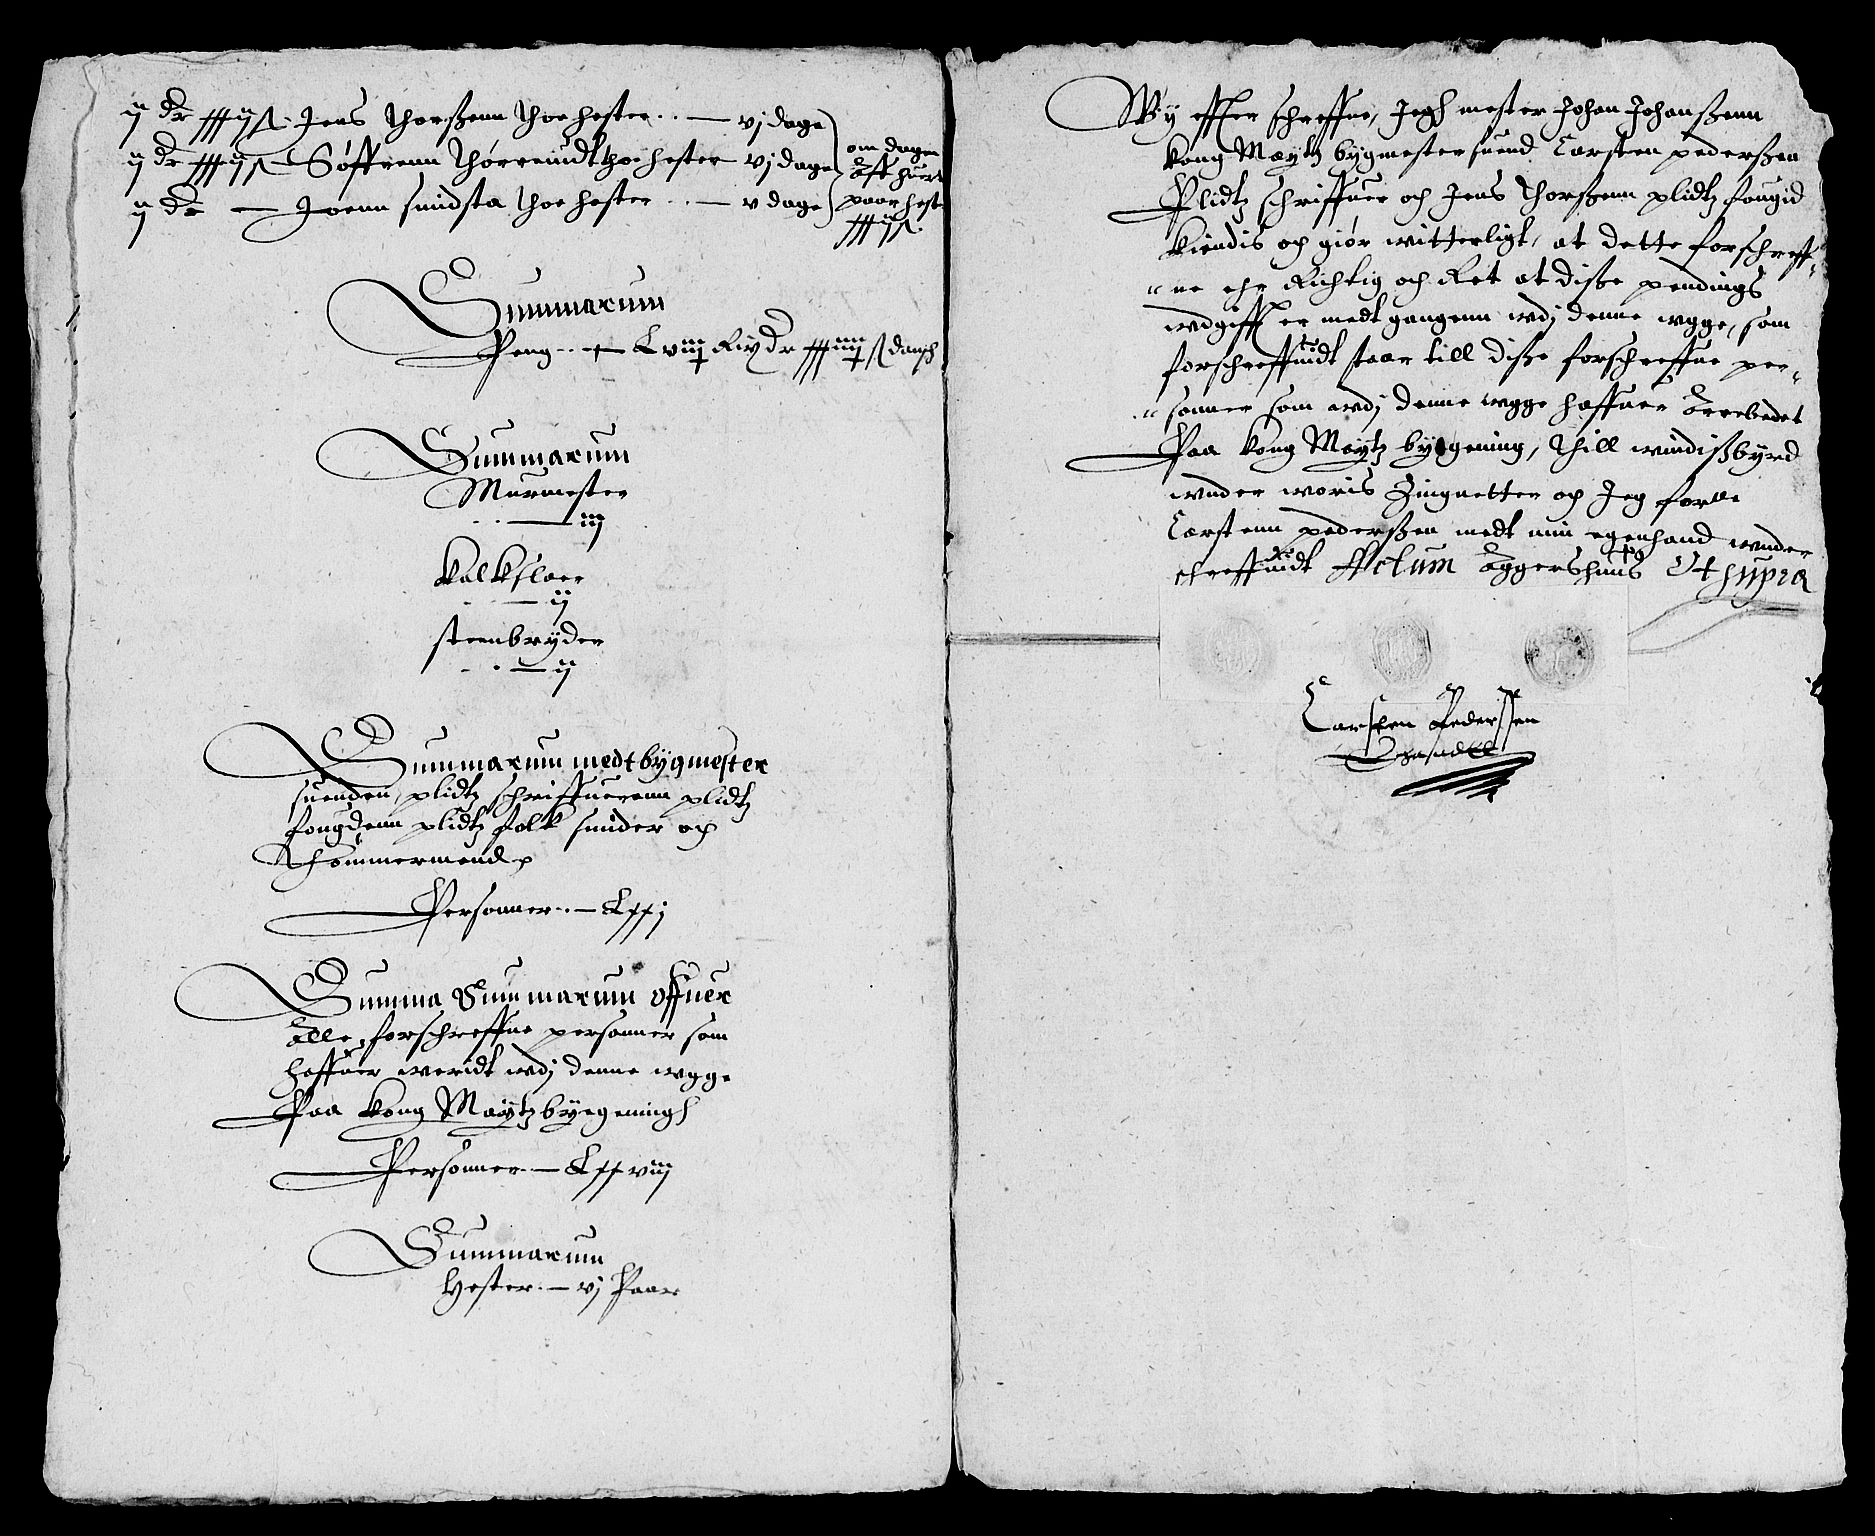 ij dr xxxij ß Jens Thorßenn thoe hester .. — vj dage
ij dr xxxij ß — Søffrenn Thørreuidt thoe hester vj dage
ij dr — Joenn smidsta thoe hester .. — v dage
om dagen
Aff huert
paar hest
xxxij ß.
Summarum
Peng .. — Lviij Rix dr xxxiiij ß dansch
Summarum
Murmester
.. — iij
kalkslaer
. — ij
steenbryder
. . — ij
Summarum medt bygmester
suenden, plidtz schriffuerenn plidtz
fougdenn plidtz folk smider och
Thømmermend
Personner .. — Lxxj
Summa Summarum offuer
Alle forschreffne personner som
haffuer weridt wdj denne wgge
Paa kong Maytz byegeningh
Personner — Lxxviij
Summarum
Hester . — vj Paar
Wy effter schreffne, Jegh mester Johan Johanßenn
kong Maytz bygmestersuend Carsten pederßen
Plidtz schriffuer och Jens Thorßenn plidtz fougid
kiendis och giør witterligt, at dette forschreff-
"ne ehr Richtig och Ret at diße pendings
wdgifft er medt gangenn wdj denne wgge, som
forschreffuidt staar till diße forschreffne per-
"sonner som wdj denne wgge haffuer Arrebedet
Paa kong Maytz bygening, Thill windißbyrd
wnder woris Zingnetter och Jeg forne
Carstenn pederßen medt min egenhand wnder
schreffuidt Actum Aggershuus Vt supra
Carsten Pederssen